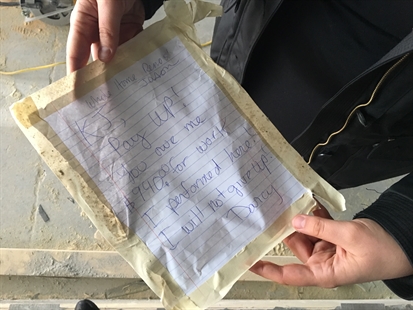 KJ,
Pay UP!
You owe me
for work
I performed here!
I will not give up!
Darcy